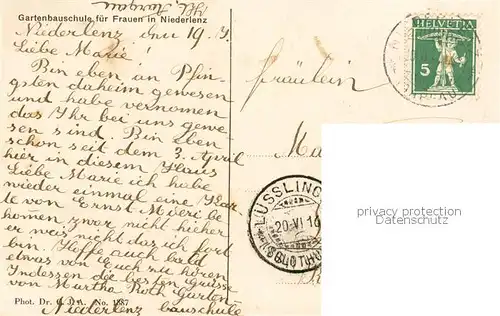 Gartenbauschule für Frauen in Niederlenz
Kt. Aargau
Niederlenz den 19. 
Liebe Marie!
Bin eben an Pfin
gsten daheim gewesen
und habe vernomen
das Ihr bei uns gewe
sen sind. Bin eben
schon seit dem 3. April
hier in diesem Haus
Liebe Marie ich habe
wieder einmal eine Kar
te von Ernst Möeri be
komen zwar nicht hieher
er weis nicht das ich fort
bin. Hoffe auch bald
etwas von Euch zu hören
Indessen die besten Grüsse
von Martha Roth Garten-
Niederlenz bauschule
Phot. Dr. G. J. A. No. 1387
Fräulein
HELVETIA
5
LÜSSLING
20.VI.16
(SOLOTHU
privacy protection
Datenschutz